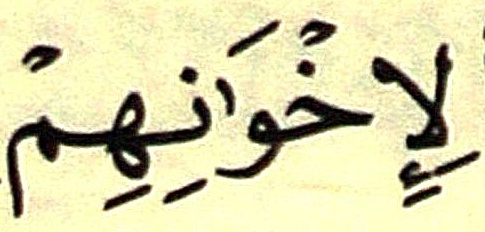 لِإِخْوَٰنِهِمْ